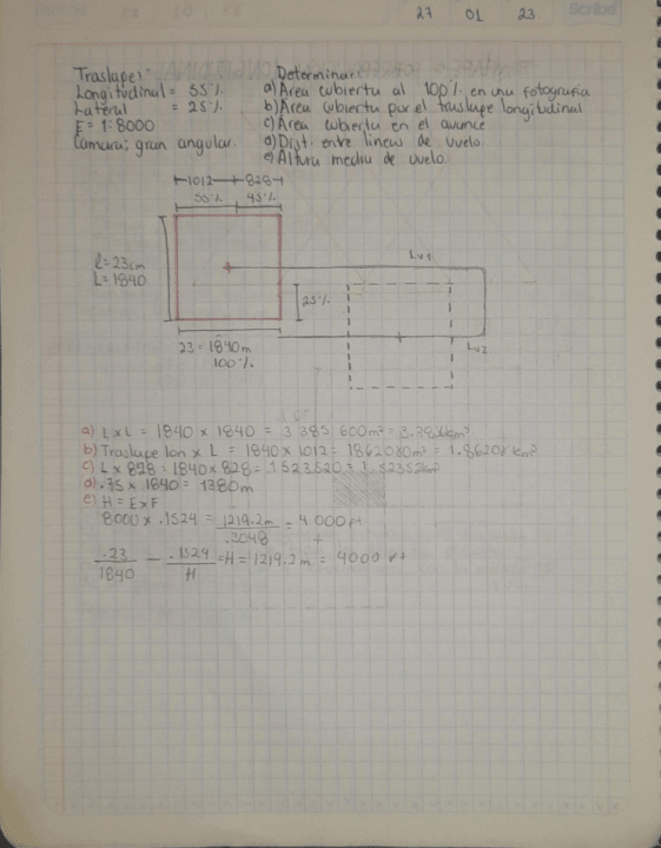 27 01 23 Scribe
Traslape:
Longitudinal = 55%
Lateral = 25%
E = 1:8000
Camara; gran angular.
Determinar:
a) Área cubierta al 100% en una fotografia
b) Área cubierta por el traslape longitudinal
c) Área cubierta en el avance
d) Dist. entre lineas de vuelo
e) Altura media de vuelo.
1012 828
55% 45%
l = 23cm
L = 1840
Lv1
25%
23 = 1840m
100%
Lv2
a) L x L = 1840 x 1840 = 3 385 600m² =
b) Traslape lon x L = 1840 x 1012 = 1862080m² = 1.86208 km²
c) L x 828 = 1840 x 828 = 1523520 = 1.52352km²
d) .75 x 1840 = 1380m
e) H = E x F
8000 x .1524 = 1219.2m = 4 000 ft
.3048
.23 - .1524 = H = 1219.2m = 4000 ft
1840 H